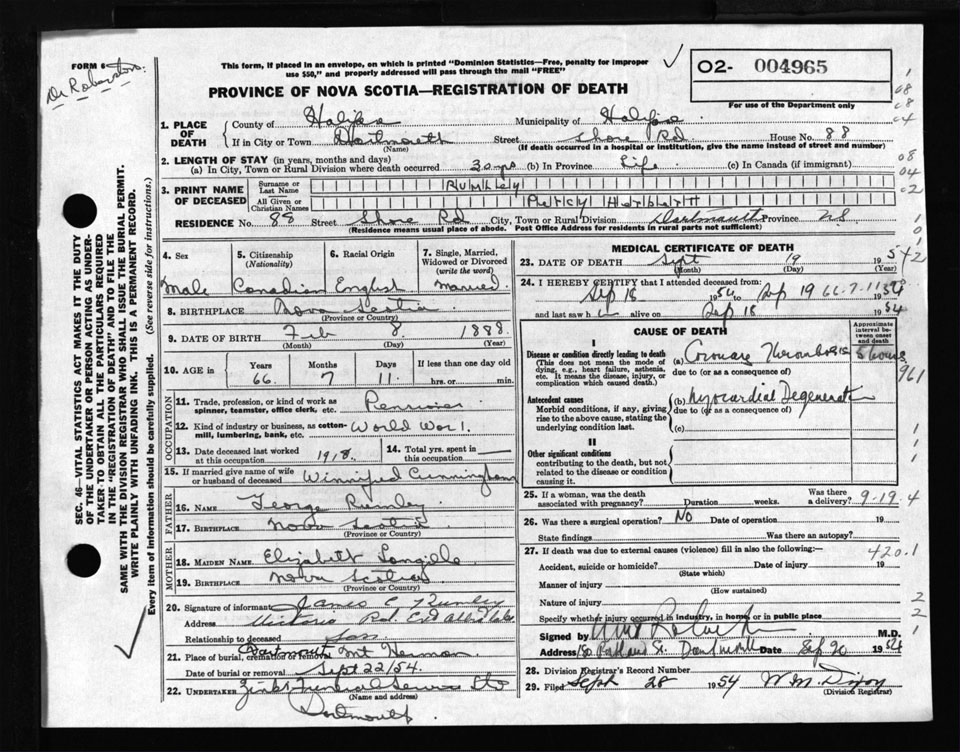 FORM 6
Dr Robertson.
This form, if placed in an envelope, on which is printed "Dominion Statistics—Free, penalty for improper
use $50," and properly addressed will pass through the mail "FREE"
O2- 004965
For use of the Department only
PROVINCE OF NOVA SCOTIA—REGISTRATION OF DEATH
1. PLACE OF DEATH
County of Halifax Municipality of Halifax
If in City or Town Dartmouth Street Shore Rd House No. 88
(Name) (If death occurred in a hospital or institution, give the name instead of street and number)
2. LENGTH OF STAY (in years, months and days)
(a) In City, Town or Rural Division where death occurred 30 yrs (b) In Province Life (c) In Canada (if immigrant)
3. PRINT NAME OF DECEASED
Surname or Last Name RUMLEY
All Given or Christian Names PERCY HERBERT
RESIDENCE No. 88 Street Shore Rd City, Town or Rural Division Dartmouth Province NS
(Residence means usual place of abode. Post Office Address for residents in rural parts not sufficient)
4. Sex
Male
5. Citizenship
(Nationality)
Canadian
6. Racial Origin
English
7. Single, Married,
Widowed or Divorced
(write the word)
Married
8. BIRTHPLACE Nova Scotia
(Province or Country)
9. DATE OF BIRTH Feb 8 1888
(Month) (Day) (Year)
10. AGE in Years Months Days If less than one day old
66 7 11 hrs. or min.
OCCUPATION
11. Trade, profession, or kind of work as
spinner, teamster, office clerk, etc. Pensioner
12. Kind of industry or business, as cotton-
mill, lumbering, bank, etc. World War 1.
13. Date deceased last worked
at this occupation 1918.
14. Total yrs. spent in
this occupation
15. If married give name of wife
or husband of deceased Winnifred Cunningham
FATHER
16. Name George Rumley
17. Birthplace Nova Scotia
(Province or Country)
MOTHER
18. Maiden Name Elizabeth Langille
19. Birthplace Nova Scotia
(Province or Country)
20. Signature of informant James C Rumley
Address Victoria Rd. Ext
Relationship to deceased Son
21. Place of burial, cremation or removal Dartmouth Mt Hermon
Date of burial or removal Sept 22/54.
22. Undertaker Zinks Funeral Service Ltd
(Name and address)
Dartmouth
MEDICAL CERTIFICATE OF DEATH
23. DATE OF DEATH Sept 19 1954
(Month) (Day) (Year)
24. I HEREBY CERTIFY that I attended deceased from:
Sep 18 1954 to Sep 19 1954
66-7-11
and last saw h alive on Sep 18 1954
CAUSE OF DEATH
Approximate
interval be-
tween onset
and death
I
Disease or condition directly leading to death
(This does not mean the mode of
dying, e.g., heart failure, asthenia,
etc. It means the disease, injury, or
complication which caused death.)
(a) Coronary Thrombosis 5 hours
due to (or as a consequence of)
Antecedent causes
Morbid conditions, if any, giving
rise to the above cause, stating the
underlying condition last.
(b) Myocardial Degeneration
due to (or as a consequence of)
(c)
II
Other significant conditions
contributing to the death, but not
related to the disease or condition
causing it.
25. If a woman, was the death
associated with pregnancy? Duration weeks. Was there
a delivery?
9-19-4
26. Was there a surgical operation? No Date of operation 19
State findings Was there an autopsy?
27. If death was due to external causes (violence) fill in also the following:
420.1
Accident, suicide or homicide? Date of injury 19
(State which)
Manner of injury
(How sustained)
Nature of injury
Specify whether injury occurred in industry, in home, or in public place
Signed by M.D.
Address Portland St. Dartmouth Date Sep 20 1954
28. Division Registrar's Record Number
29. Filed Sept 28 1954 W.M. Dixon
(Division Registrar)
SEC. 46—VITAL STATISTICS ACT MAKES IT THE DUTY
OF THE UNDERTAKER OR PERSON ACTING AS UNDER-
TAKER TO OBTAIN ALL THE PARTICULARS REQUIRED
IN THE "REGISTRATION OF DEATH" AND TO FILE THE
SAME WITH THE DIVISION REGISTRAR WHO SHALL ISSUE THE BURIAL PERMIT.
WRITE PLAINLY WITH UNFADING INK. THIS IS A PERMANENT RECORD.
Every item of information should be carefully supplied. (See reverse side for instructions.)